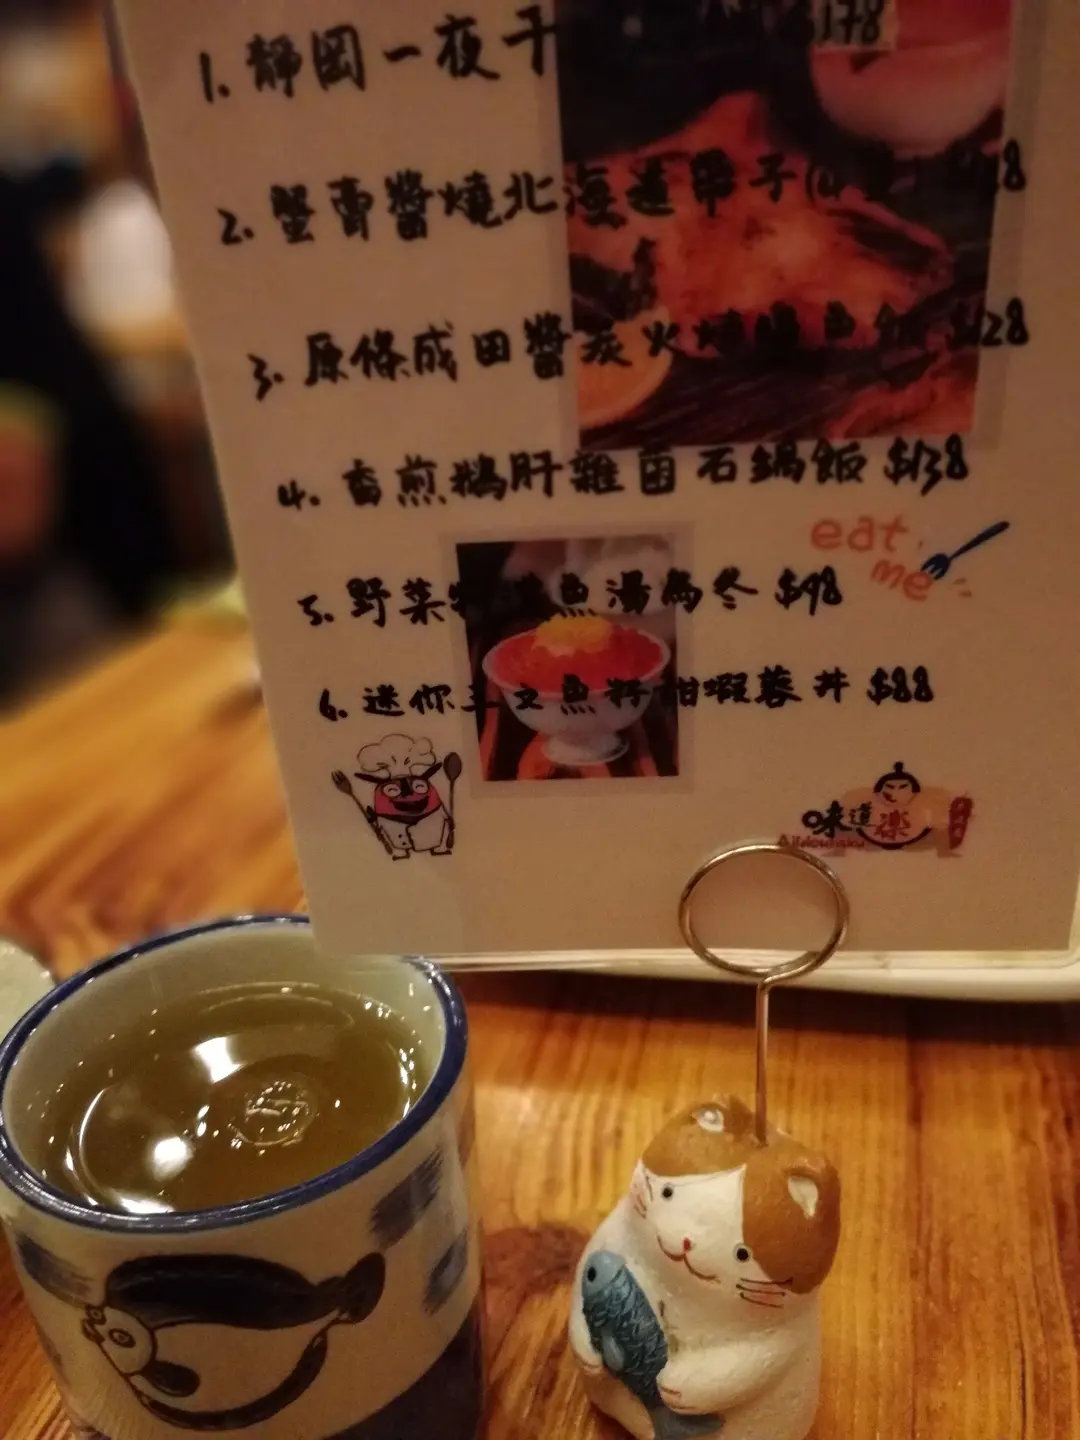 1. 靜岡一夜干 $178
2. 蟹膏醬燒北海道帶子
3. 原條成田醬炭火燒鰻魚飯 $128
4. 香煎鵝肝雜菌石鍋飯 $138
eat me
5. 野菜 魚湯烏冬 $98
6. 迷你三文魚籽甜蝦蓉丼 $88
味道楽